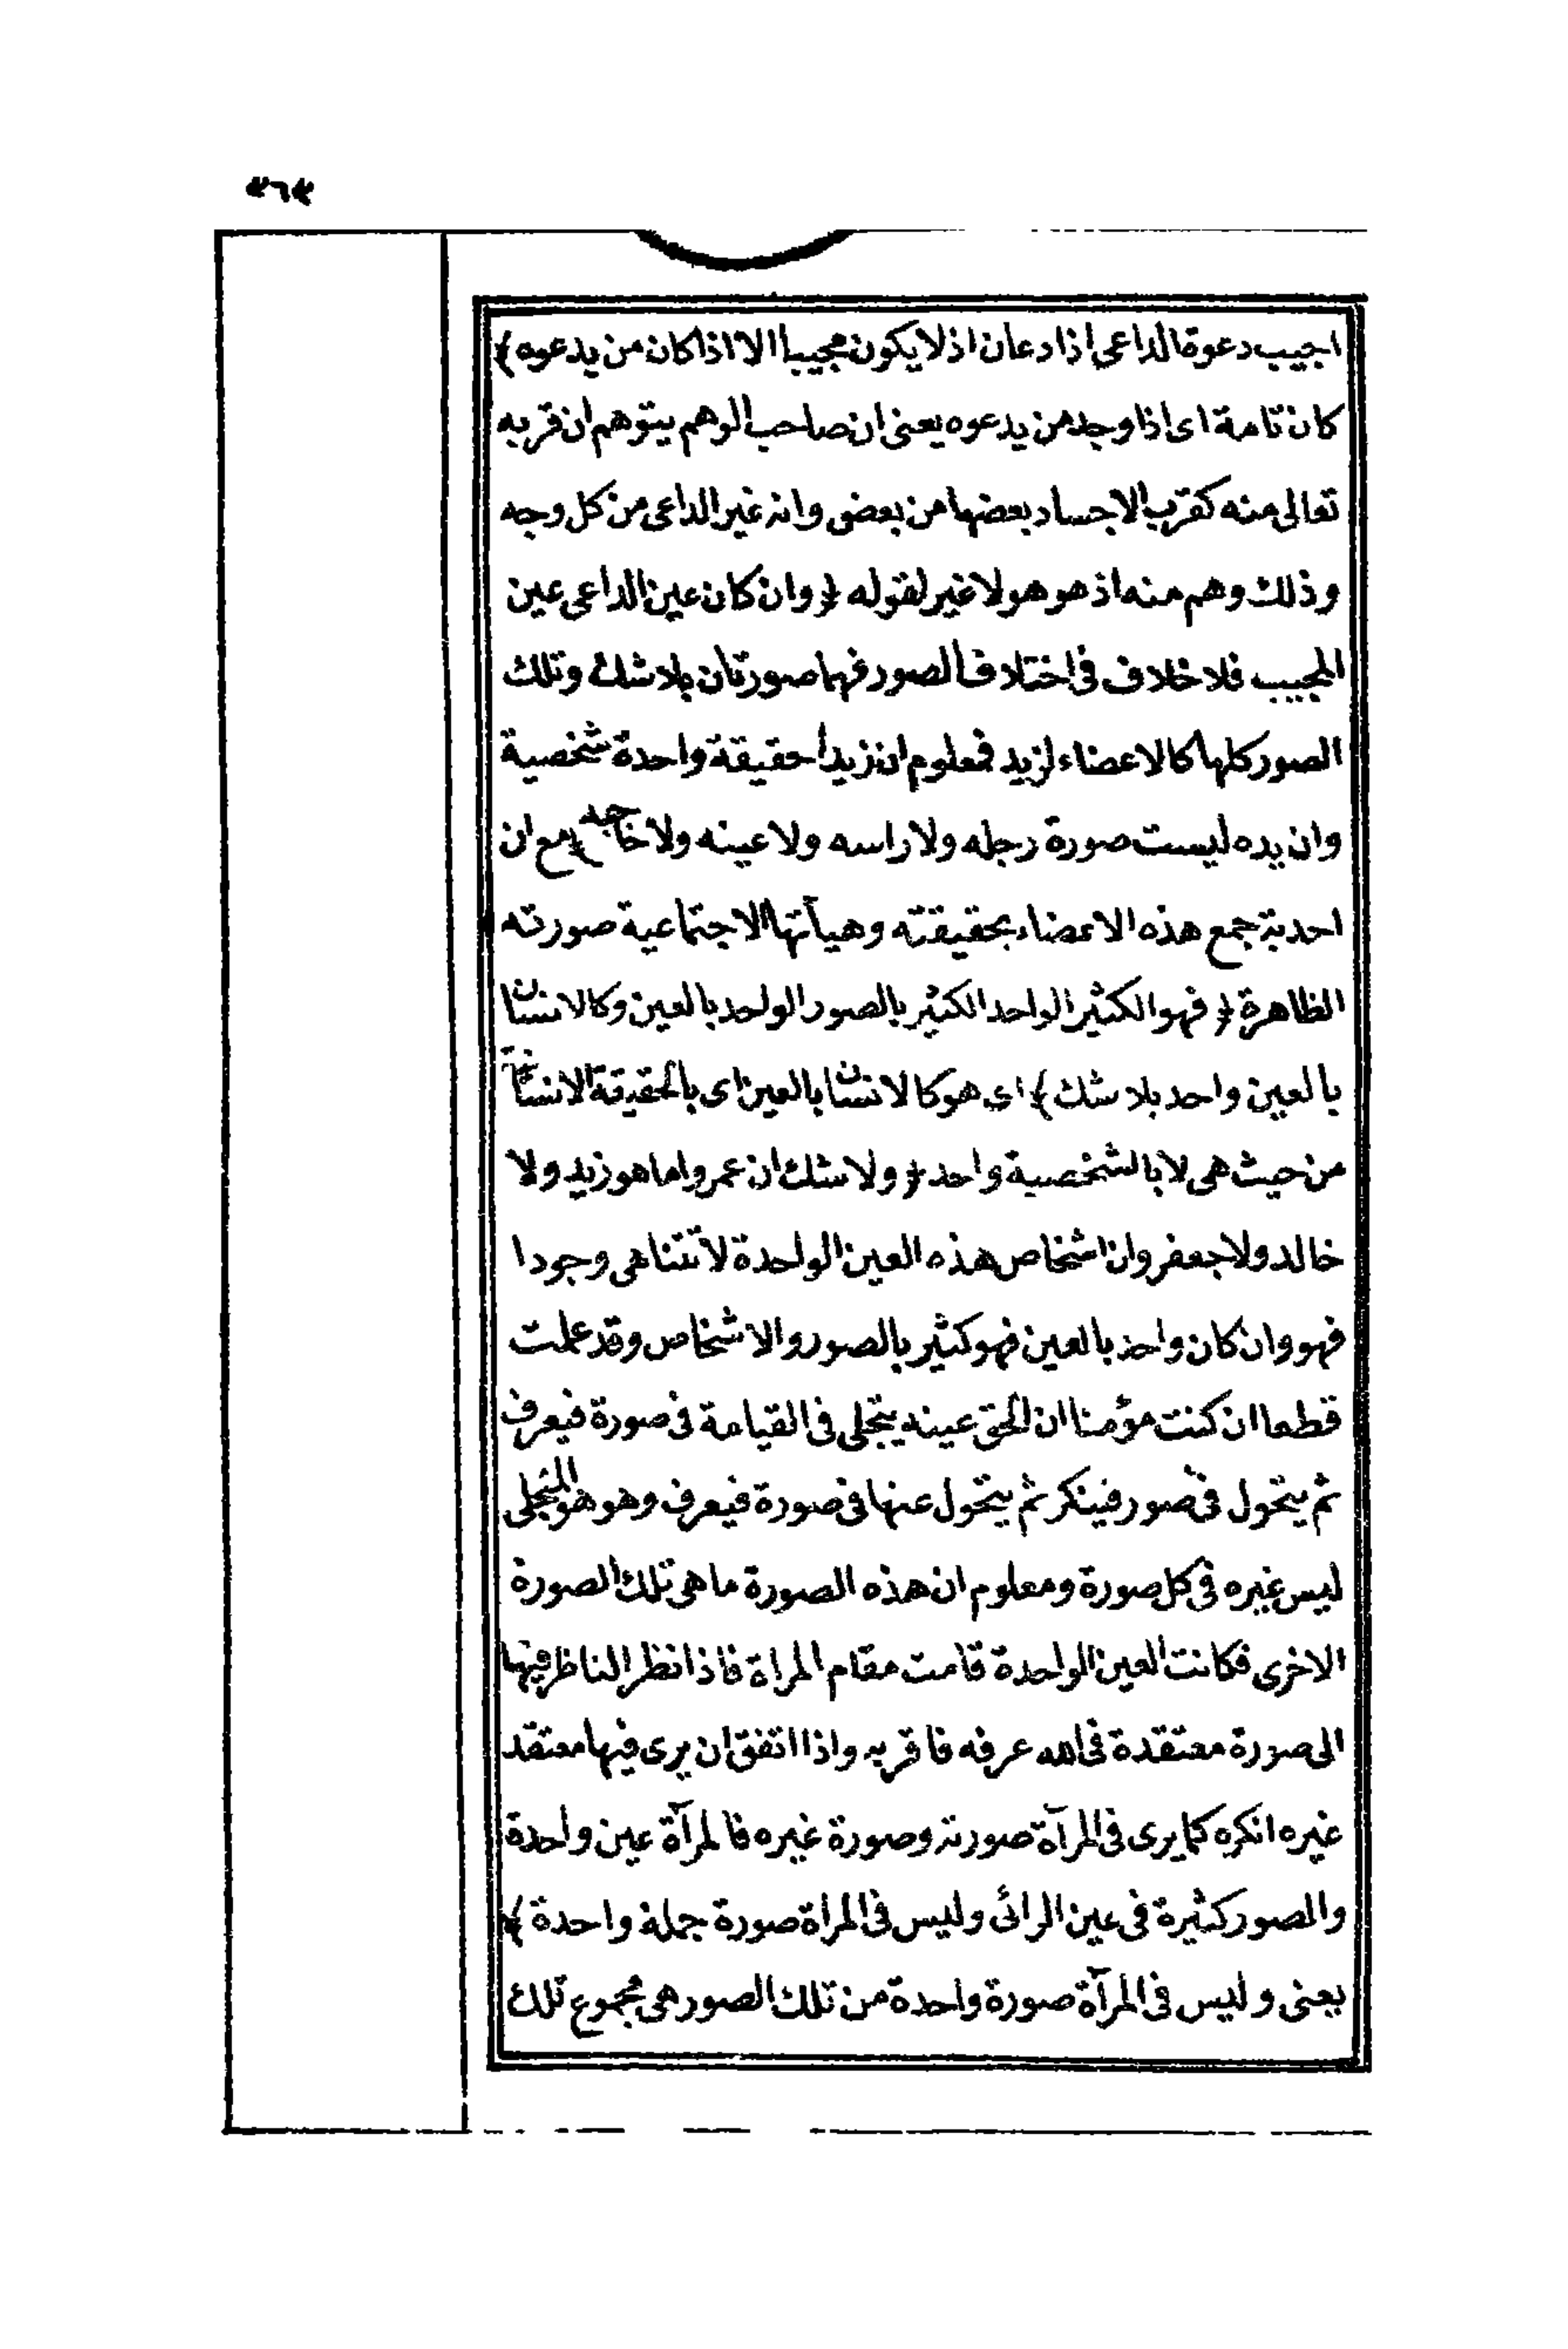 ﴿٦﴾
اجيب دعوة الداعى اذا دعان اذ لا يكون مجيبا الا اذا كان من يدعوه ﴾
كان تامة اى اذا وجد من يدعوه يعنى ان صاحب الوهم يتوهم ان قربه
تعالى منه كقرب الاجساد بعضها من بعض وانه غير الداعى من كل وجه
وذلك وهم منه اذ هو هو لا غير لقوله ﴿ وان كان عين الداعى عين
المجيب فلا خلاف فى اختلاف الصور فهما صورتان بلا شك وتلك
الصور كلها كالاعضاء لزيد فمعلوم ان زيدا حقيقة واحدة شخصية
وان يده ليست صورة رجله ولا راسه ولا عينه ولا حاجبه ﴾ مع ان
احدية جمع هذه الاعضاء بحقيقته وهيآتها الاجتماعية صورته
الظاهرة ﴿ فهو الكثير الواحد الكثير بالصور الواحد بالعين وكالانسان
بالعين واحد بلا شك ﴾ اى هو كالانسان بالعين اى بالحقيقة الانسانية
من حيث هى لا بالشخصية واحد ﴿ ولا شك ان عمروا ما هو زيد ولا
خالد ولا جعفر وان اشخاص هذه العين الواحدة لا تتناهى وجودا
فهو وان كان واحد بالعين فهو كثير بالصور والاشخاص وقد علمت
قطعا ان كنت مؤمنا ان الحق عينه يتجلى فى القيامة فى صورة فيعرف
ثم يتحول فى صور فينكر ثم يتحول عنها فى صورة فيعرف وهو هو المتجلى
ليس غيره فى كل صورة ومعلوم ان هذه الصورة ما هى تلك الصورة
الاخرى فكانت العين الواحدة قامت مقام المراة فاذا نظر الناظر فيها
الى صورة معتقدة فى الله عرفه فاقر به واذا اتفق ان يرى فيها معتقد
غيره انكره كما يرى فى المرآة صورته وصورة غيره فالمرآة عين واحدة
والصور كثيرة فى عين الرائى وليس فى المراة صورة جملة واحدة ﴾
يعنى وليس فى المرآة صورة واحدة من تلك الصور هى مجموع تلك